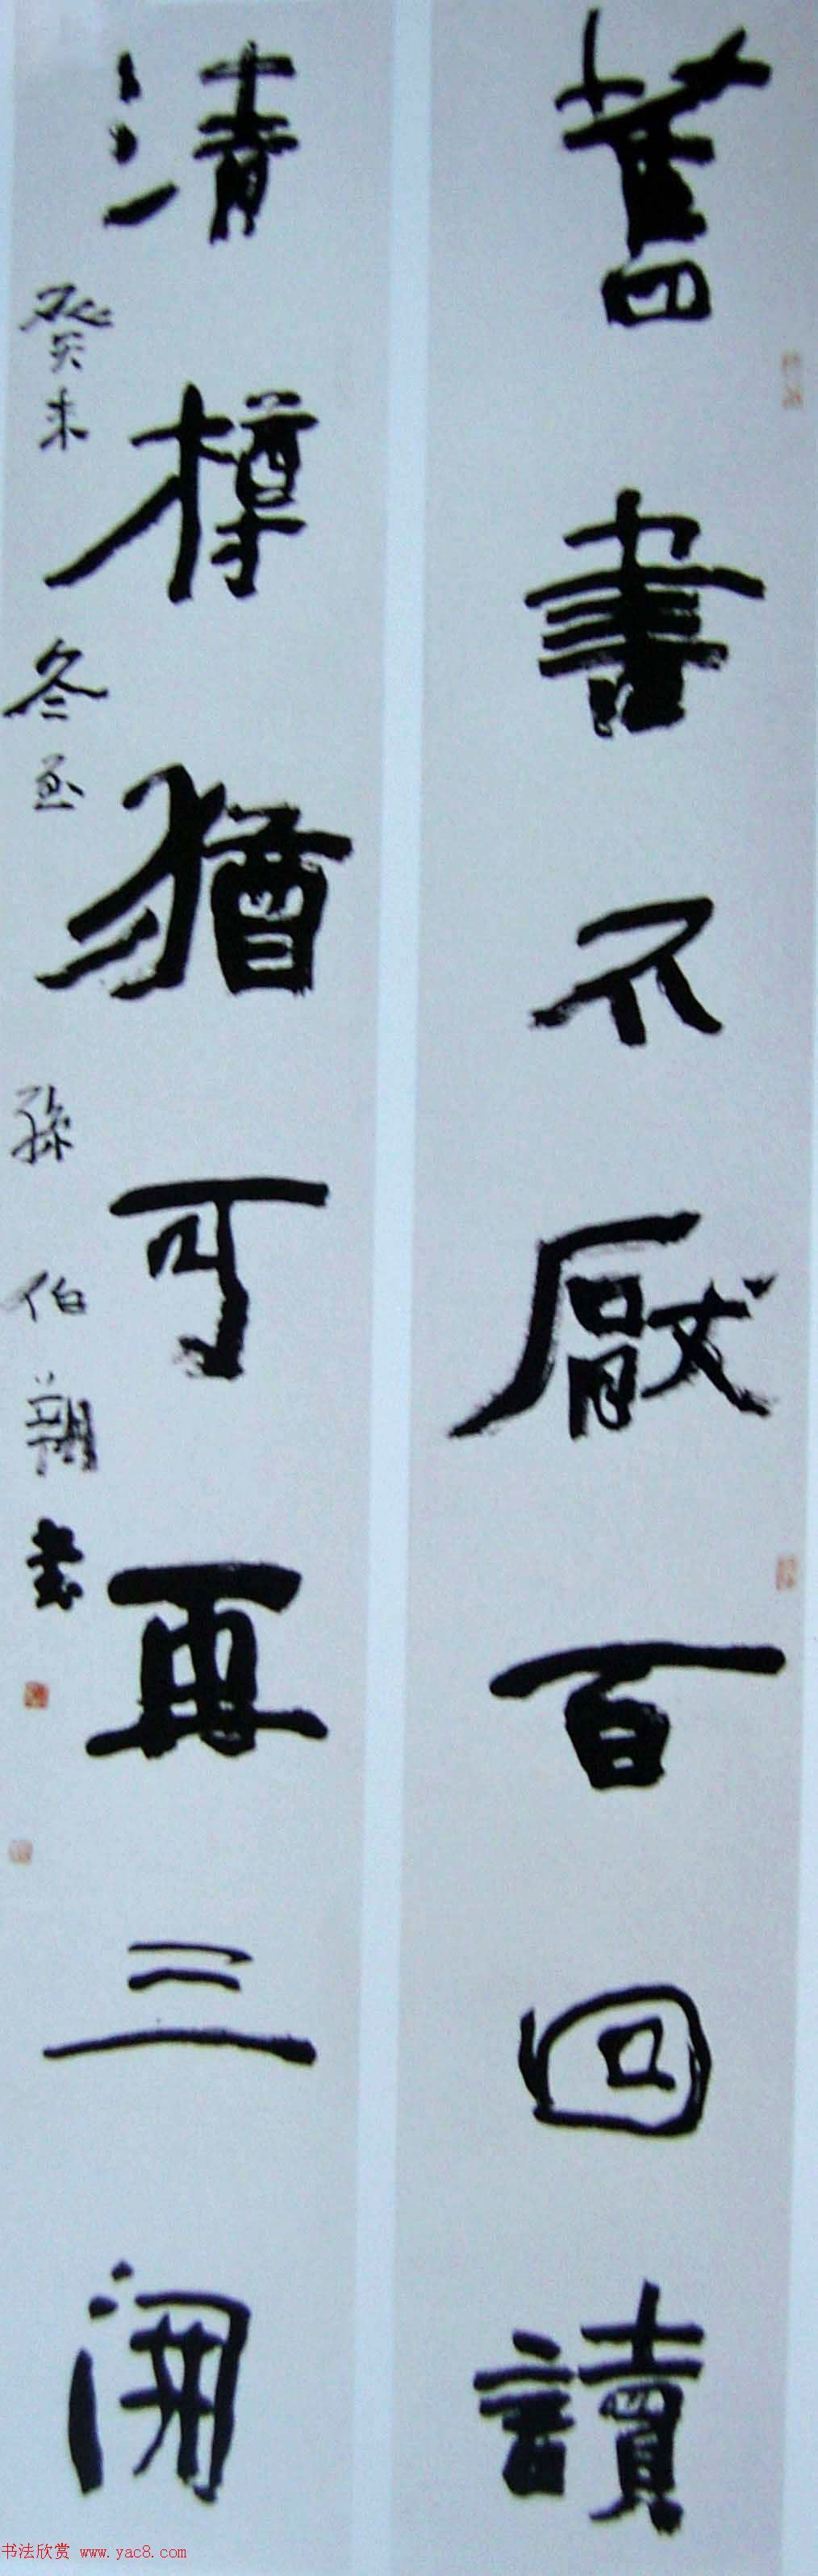 舊書不厭百回讀
清樽猶可再三開
癸未冬至 孫伯翔書
书法欣赏 www.yac8.com